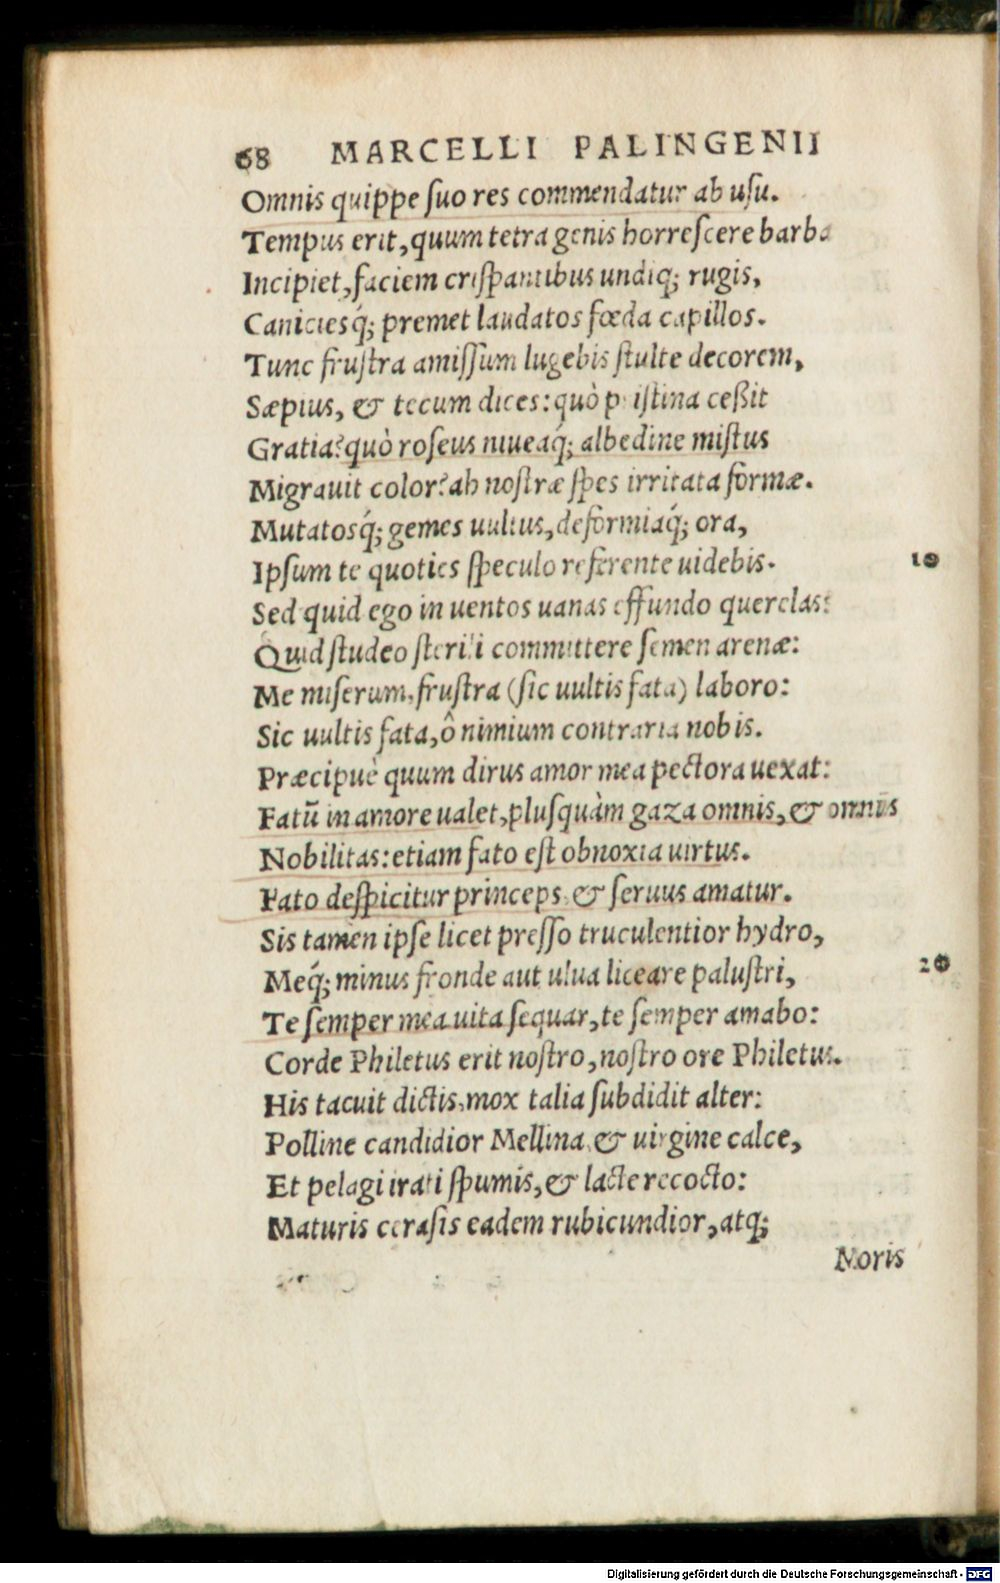 68 MARCELLI PALINGENII
Omnis quippe ſuo res commendatur ab uſu.
Tempus erit, quum tetra genis horreſcere barba
Incipiet, faciem criſpantibus undiq; rugis,
Caniciesq́; premet laudatos fœda capillos.
Tunc fruſtra amiſſum lugebis ſtulte decorem,
Sæpius, & tecum dices: quò priſtina ceßit
Gratia? quò roſeus niueaq́; albedine miſtus
Migrauit color? ah noſtræ ſpes irritata formæ.
Mutatosq́; gemes uultus, deformiaq́; ora,
Ipſum te quoties ſpeculo referente uidebis. 10
Sed quid ego in uentos uanas effundo querelas:
Quid ſtudeo ſterili committere ſemen arenæ:
Me miſerum, fruſtra (ſic uultis fata) laboro:
Sic uultis fata, ô nimium contraria nobis.
Præcipuè quum dirus amor mea pectora uexat:
Fatū in amore ualet, pluſquàm gaza omnis, & omnis
Nobilitas: etiam fato eſt obnoxia uirtus.
Fato deſpicitur princeps, & ſeruus amatur.
Sis tamen ipſe licet preſſo truculentior hydro,
Meq́; minus fronde aut ulua liceare paluſtri, 20
Te ſemper mea uita ſequar, te ſemper amabo:
Corde Philetus erit noſtro, noſtro ore Philetus.
His tacuit dictis, mox talia ſubdidit alter:
Polline candidior Mellina, & uirgine calce,
Et pelagi irati ſpumis, & lacte recocto:
Maturis ceraſis eadem rubicundior, atq;
Moris
Digitalisierung gefördert durch die Deutsche Forschungsgemeinschaft - DFG